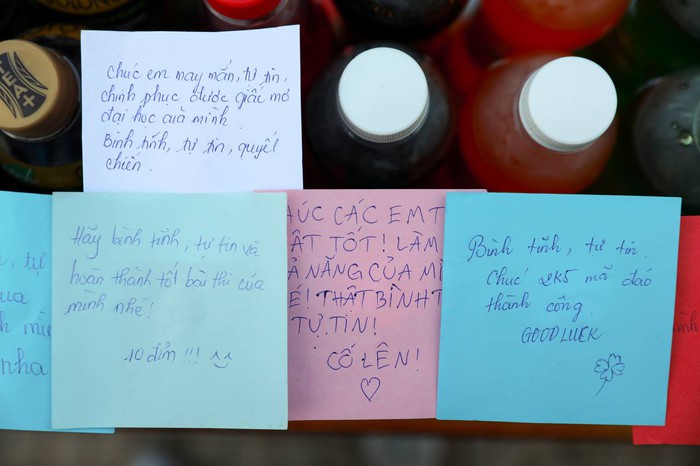 Chúc em may mắn, tự tin,
chinh phục được giấc mơ
đại học của mình.
Bình tĩnh, tự tin, quyết
chiến.
Hãy bình tĩnh, tự tin và
hoàn thành tốt bài thi của
mình nhé!
10 điểm !!!
ÚC CÁC EM T
ẬT TỐT! LÀM
Ả NĂNG CỦA MÌ
É! THẬT BÌNH T
TỰ TIN!
CỐ LÊN!
Bình tĩnh, tự tin.
Chúc 2K5 mã đáo
thành công.
GOODLUCK
, tự
qua
mì
nha
ình